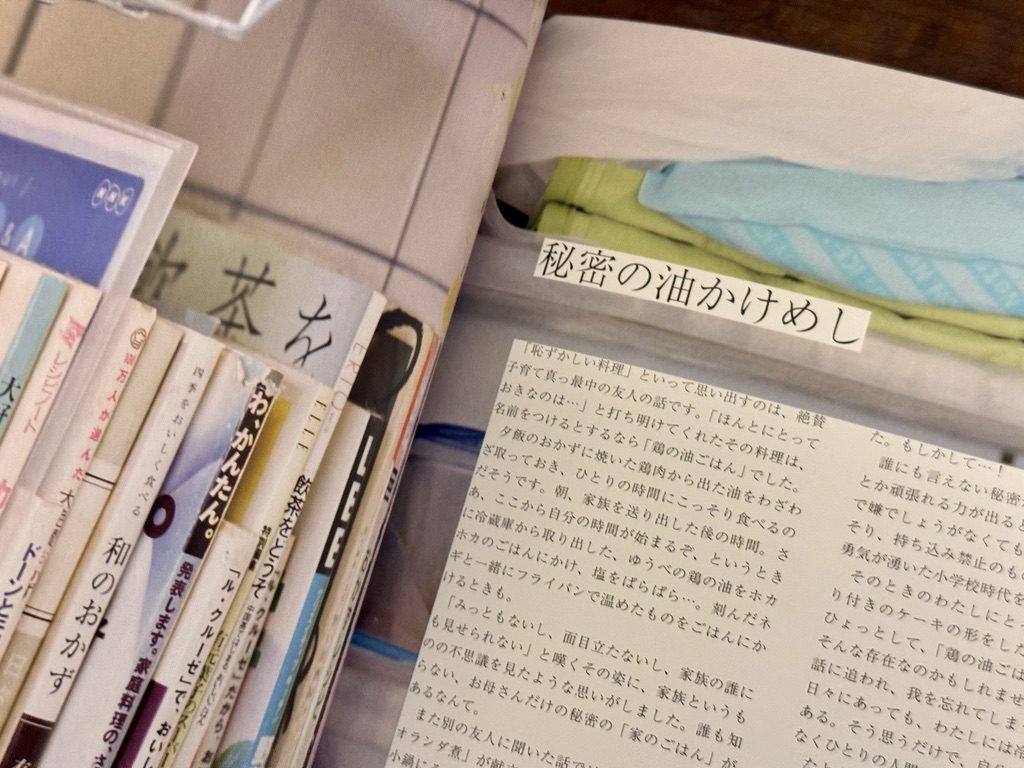 NHK
&A
飲茶を
レシピノート
百万人が選んだ
四季をおいしく食べる
和のおかず
わ、かんたん。
発表します。家庭料理の、さ
「ル・クルーゼ」で、おいし
飲茶をどうぞ
特集
クルーゼ」だから、お
LEE
秘密の油かけめし
「恥ずかしい料理」といって思い出すのは、絶賛
子育て真っ最中の友人の話です。「ほんとにとって
おきなのは…」と打ち明けてくれたその料理は、
名前をつけるとするなら「鶏の油ごはん」でした。
夕飯のおかずに焼いた鶏肉から出た油をわざわ
ざ取っておき、ひとりの時間にこっそり食べるの
だそうです。朝、家族を送り出した後の時間。さ
あ、ここから自分の時間が始まるぞ、というとき
に冷蔵庫から取り出した、ゆうべの鶏の油をホカ
ホカのごはんにかけ、塩をぱらぱら…。刻んだネ
ギと一緒にフライパンで温めたものをごはんにか
けるときも。
「みっともないし、面目立たないし、家族の誰に
も見せられない」と嘆くその姿に、家族というも
のの不思議を見たような思いがしました。誰も知
らない、お母さんだけの秘密の「家のごはん」が
あるなんて。
また別の友人に聞いた話では
オランダ煮」が
小鍋に
た。もしかして…！
誰にも言えない秘密
とか頑張れる力が出ると
で嫌でしょうがなくても
そり、持ち込み禁止のも
勇気が湧いた小学校時代を
そのときのわたしにと
り付きのケーキの形をした
ひょっとして、「鶏の油ごは
そんな存在なのかもしれませ
話に追われ、我を忘れてしま
日々にあっても、わたしには冷
ある。そう思うだけで、自分
なくひとりの人間